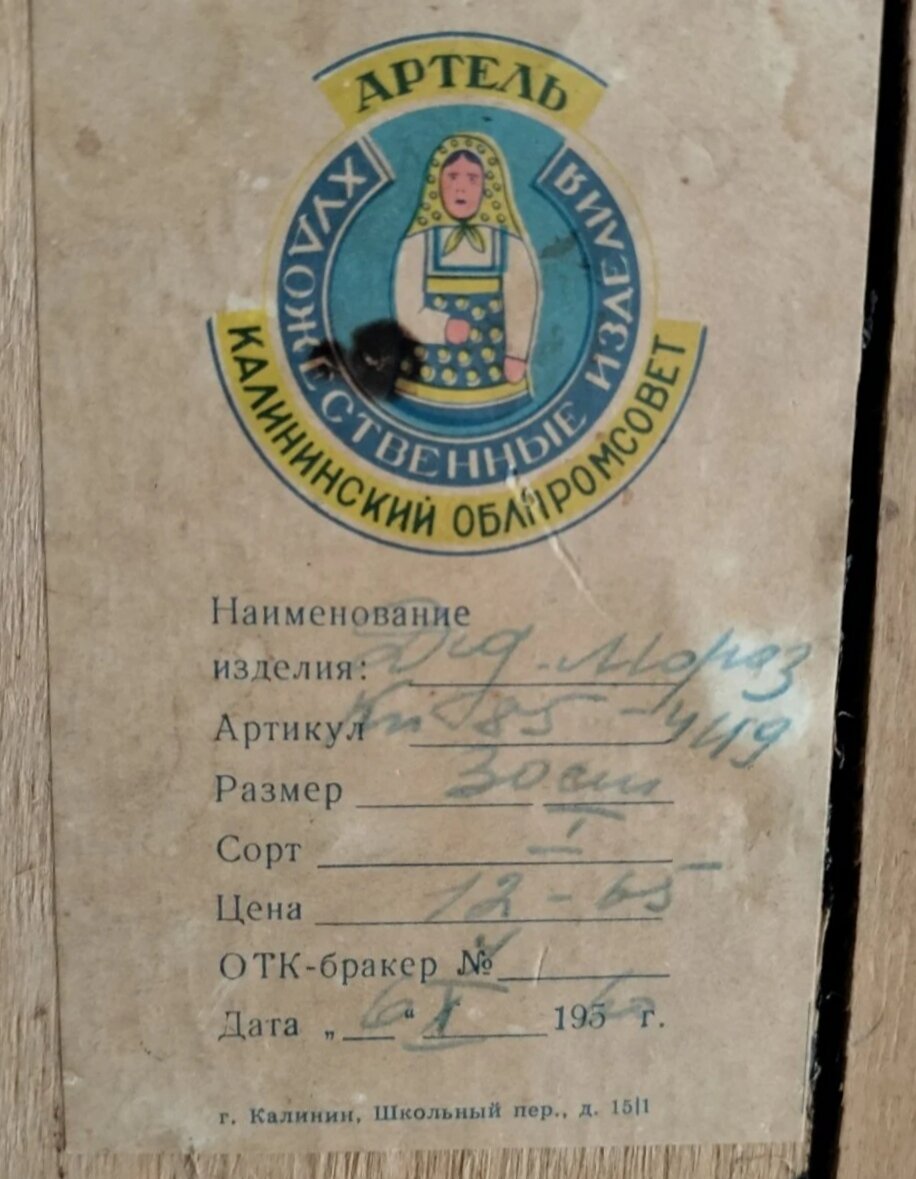 АРТЕЛЬ
ХУДОЖЕСТВЕННЫЕ ИЗДЕЛИЯ
КАЛИНИНСКИЙ ОБЛПРОМСОВЕТ
Наименование
изделия: Дед-Мороз
Артикул 85-
Размер 30 см
Сорт I
Цена 12-65
ОТК-бракер №
Дата „6“ 195 г.
г. Калинин, Школьный пер., д. 15|1